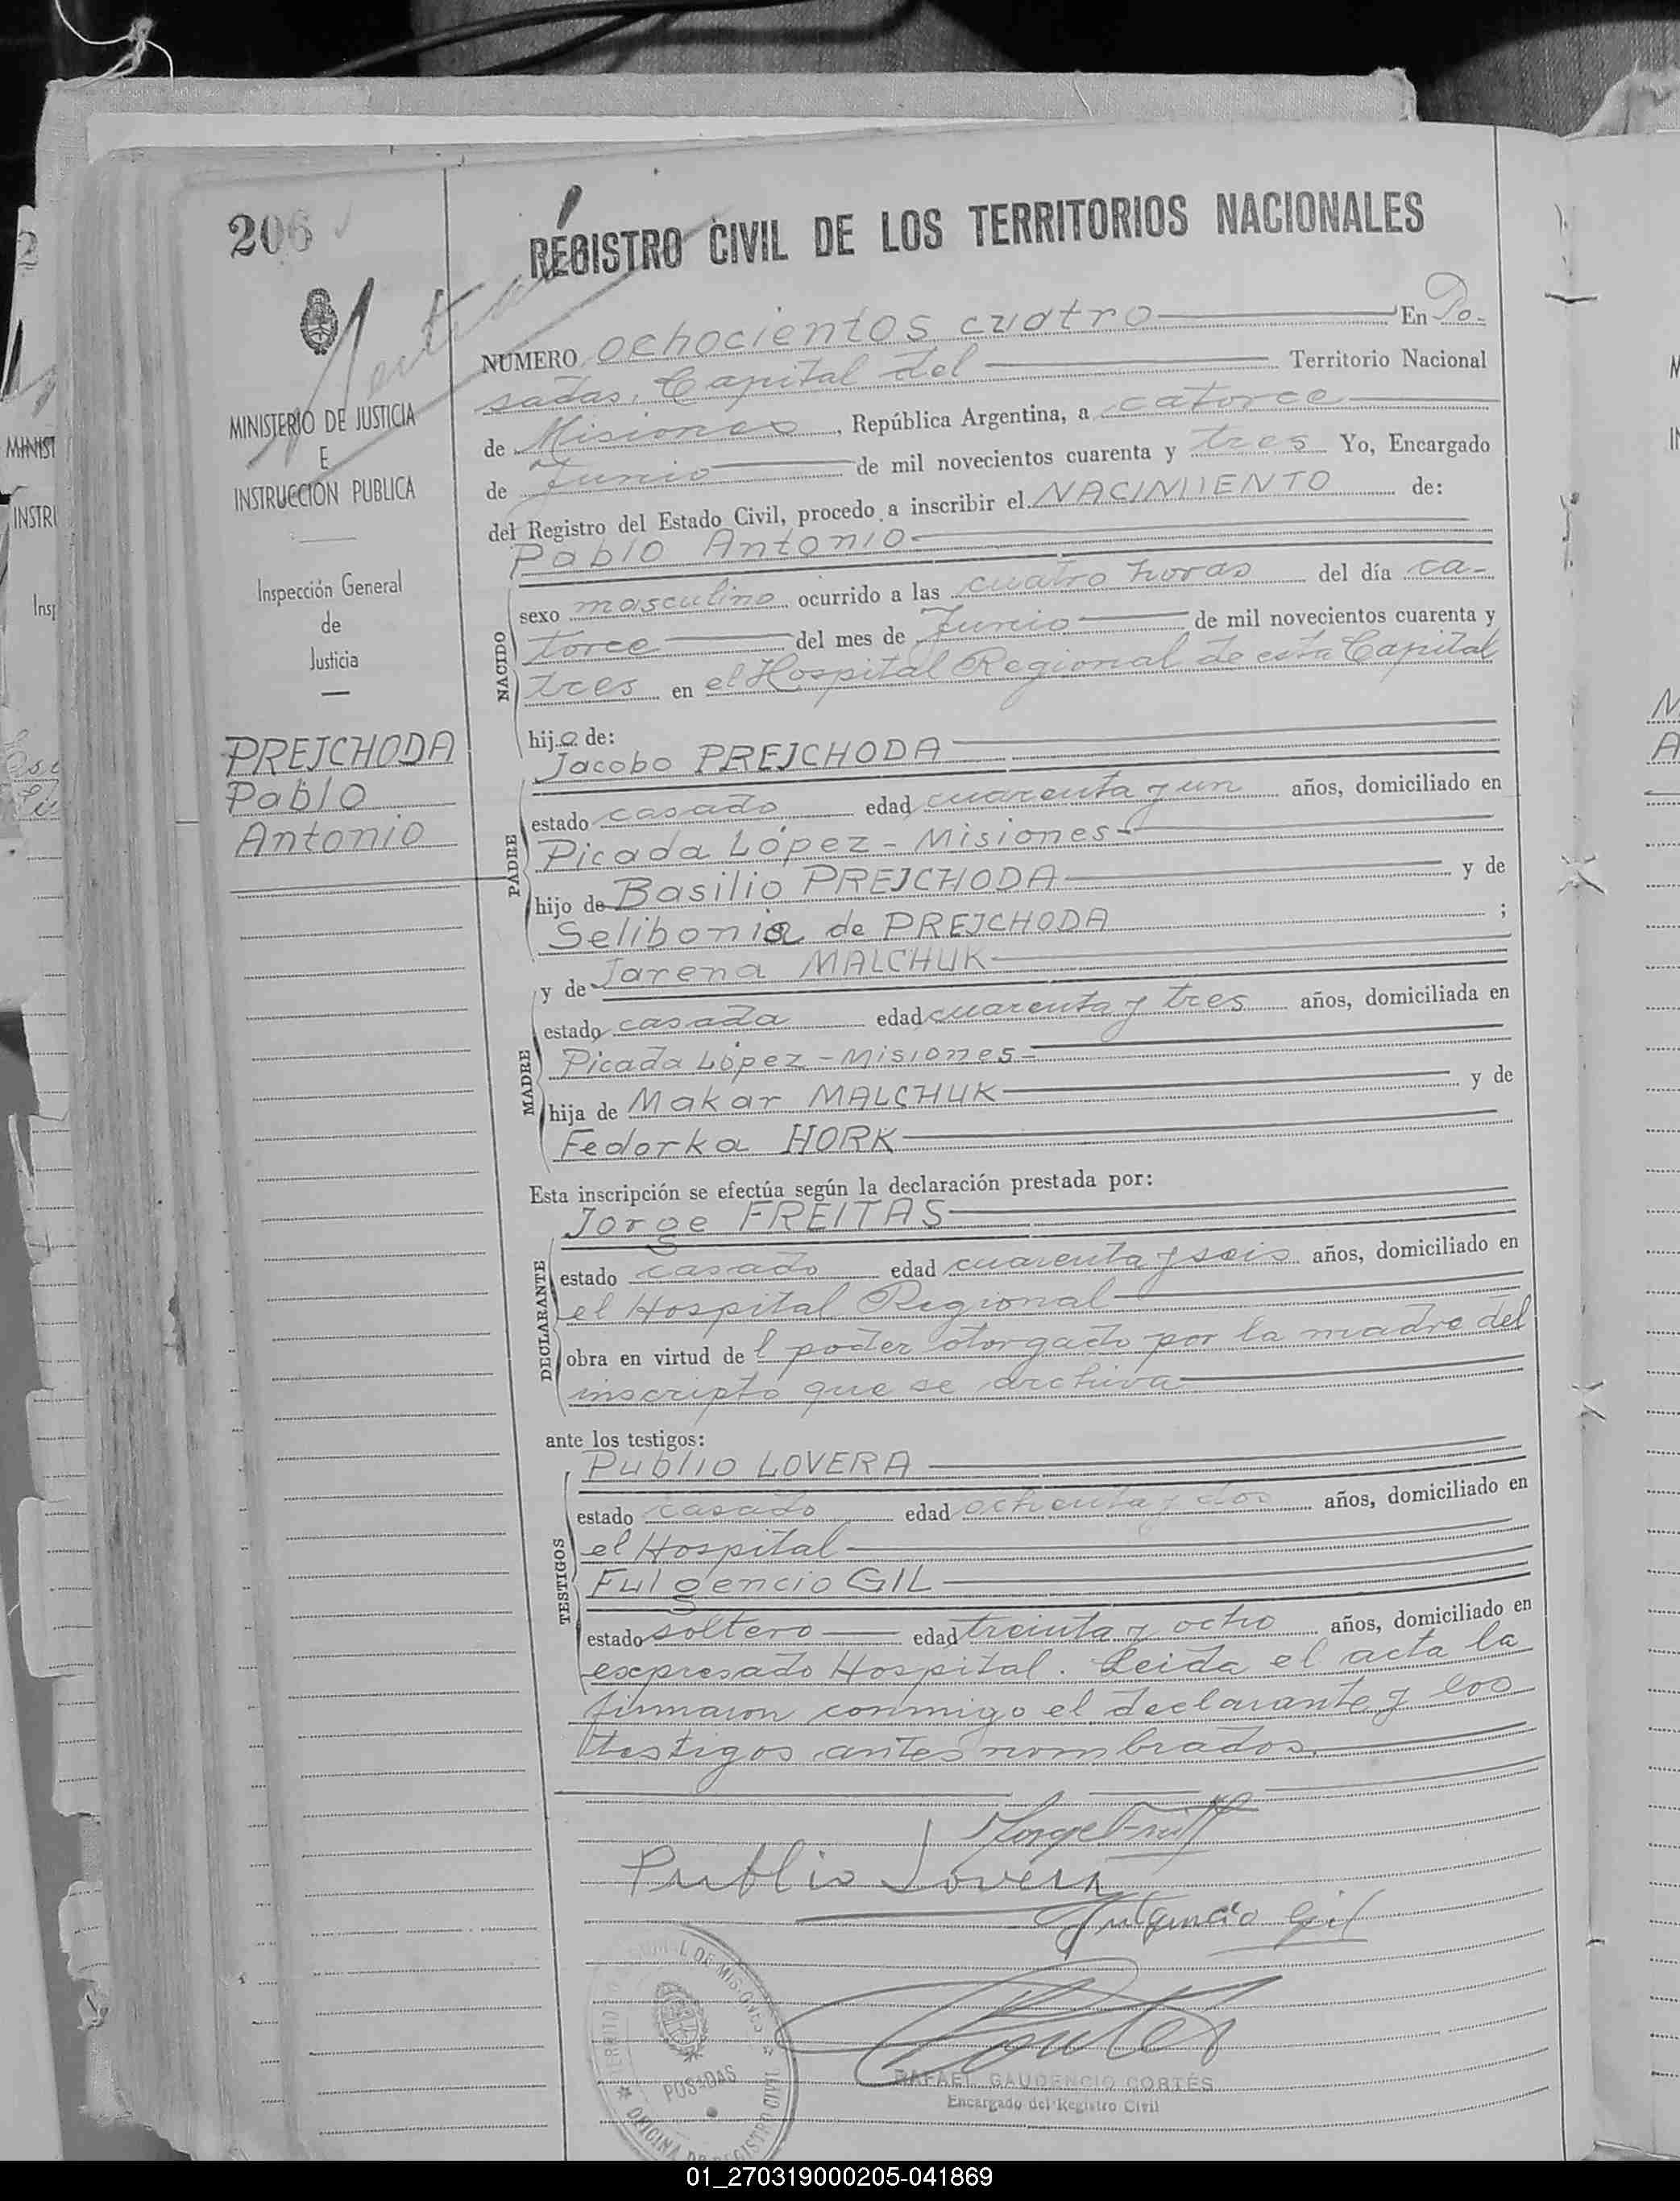 206
REGISTRO CIVIL DE LOS TERRITORIOS NACIONALES
NUMERO ochocientos cuatro En Po-
sadas, Capital del Territorio Nacional
de Misiones, República Argentina, a catorce
de Junio de mil novecientos cuarenta y tres Yo, Encargado
del Registro del Estado Civil, procedo a inscribir el NACIMIENTO de:
Pablo Antonio
NACIDO
sexo masculino ocurrido a las cuatro horas del día ca-
torce del mes de Junio de mil novecientos cuarenta y
tres en el Hospital Regional de esta Capital
hijo de:
Jacobo PREJCHODA
PADRE
estado casado edad cuarenta y un años, domiciliado en
Picada López - Misiones-
hijo de Basilio PREJCHODA y de
Selibonia de PREJCHODA ;
y de Jarena MALCHUK
MADRE
estado casada edad cuarenta y tres años, domiciliada en
Picada López - Misiones-
hija de Makar MALCHUK y de
Fedorka HORK
Esta inscripción se efectúa según la declaración prestada por:
Jorge FREITAS
DECLARANTE
estado casado edad cuarenta y seis años, domiciliado en
el Hospital Regional
obra en virtud de l poder otorgado por la madre del
inscripto que se archiva
ante los testigos:
Publio LOVERA
TESTIGOS
estado casado edad ochenta y dos años, domiciliado en
el Hospital
Fulgencio GIL
estado soltero edad treinta y ocho años, domiciliado en
expresado Hospital. Leida el acta la
firmaron conmigo el declarante y los
testigos antes nombrados.
Publio Lovera
Fulgencio Gil
RAFAEL GAUDENCIO CORTÉS
Encargado del Registro Civil
POSADAS
MINISTERIO DE JUSTICIA
E
INSTRUCCIÓN PUBLICA
Inspección General
de
Justicia
PREJCHODA
Pablo
Antonio
01_270319000205-041869